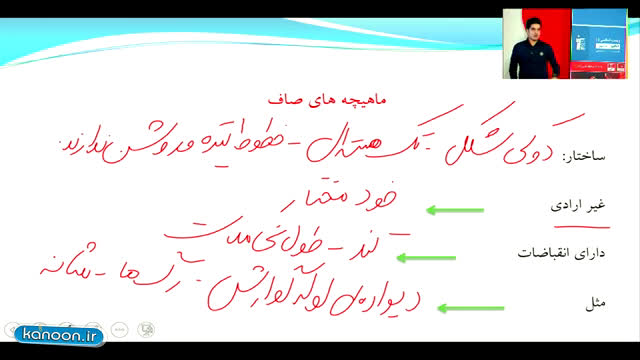 ماهیچه های صاف
ساختار: دوکی شکل - تک هسته‌ای - خطوط تیره و روشن ندارند
غیر ارادی خود مختار
دارای انقباضات کند - طولانی مدت
مثل دیواره‌ی لوله گوارش - رگ ها - مثانه
kanoon.ir